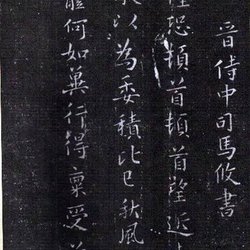 晉侍中司馬攸書
惶恐頓首頓首望近
以為委積比已秋風
體何如冀行得稟受